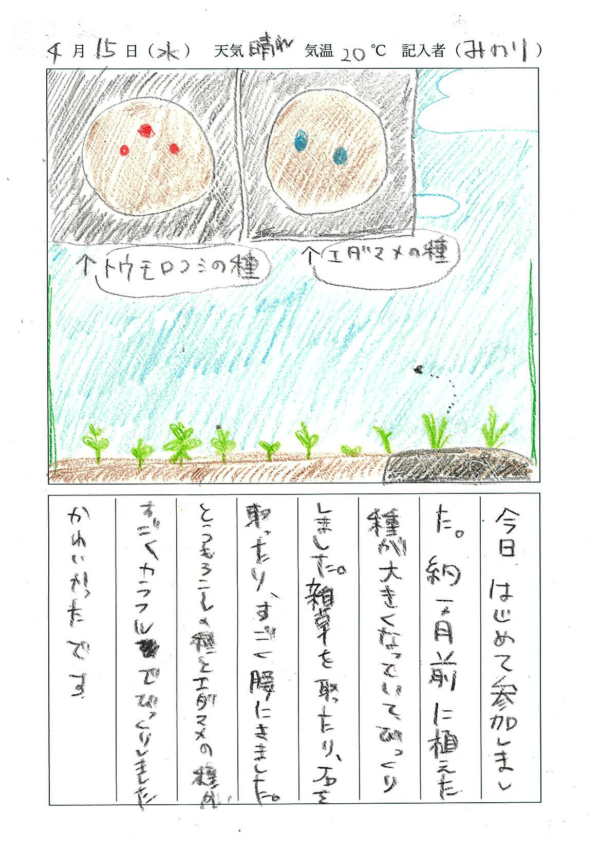 4月15日(水) 天気 晴れ 気温 20℃ 記入者(みのり)
↑トウモロコシの種
↑エダマメの種
今日はじめて参加しまし
た。約一ヶ月前に植えた
種が大きくなっていて、びっくり
しました。雑草を取ったり、石を
取ったり、すごく腰にきました。
とうもろこしの種とエダマメの種が、
すごくカラフルでびっくりしました
かわいかったです